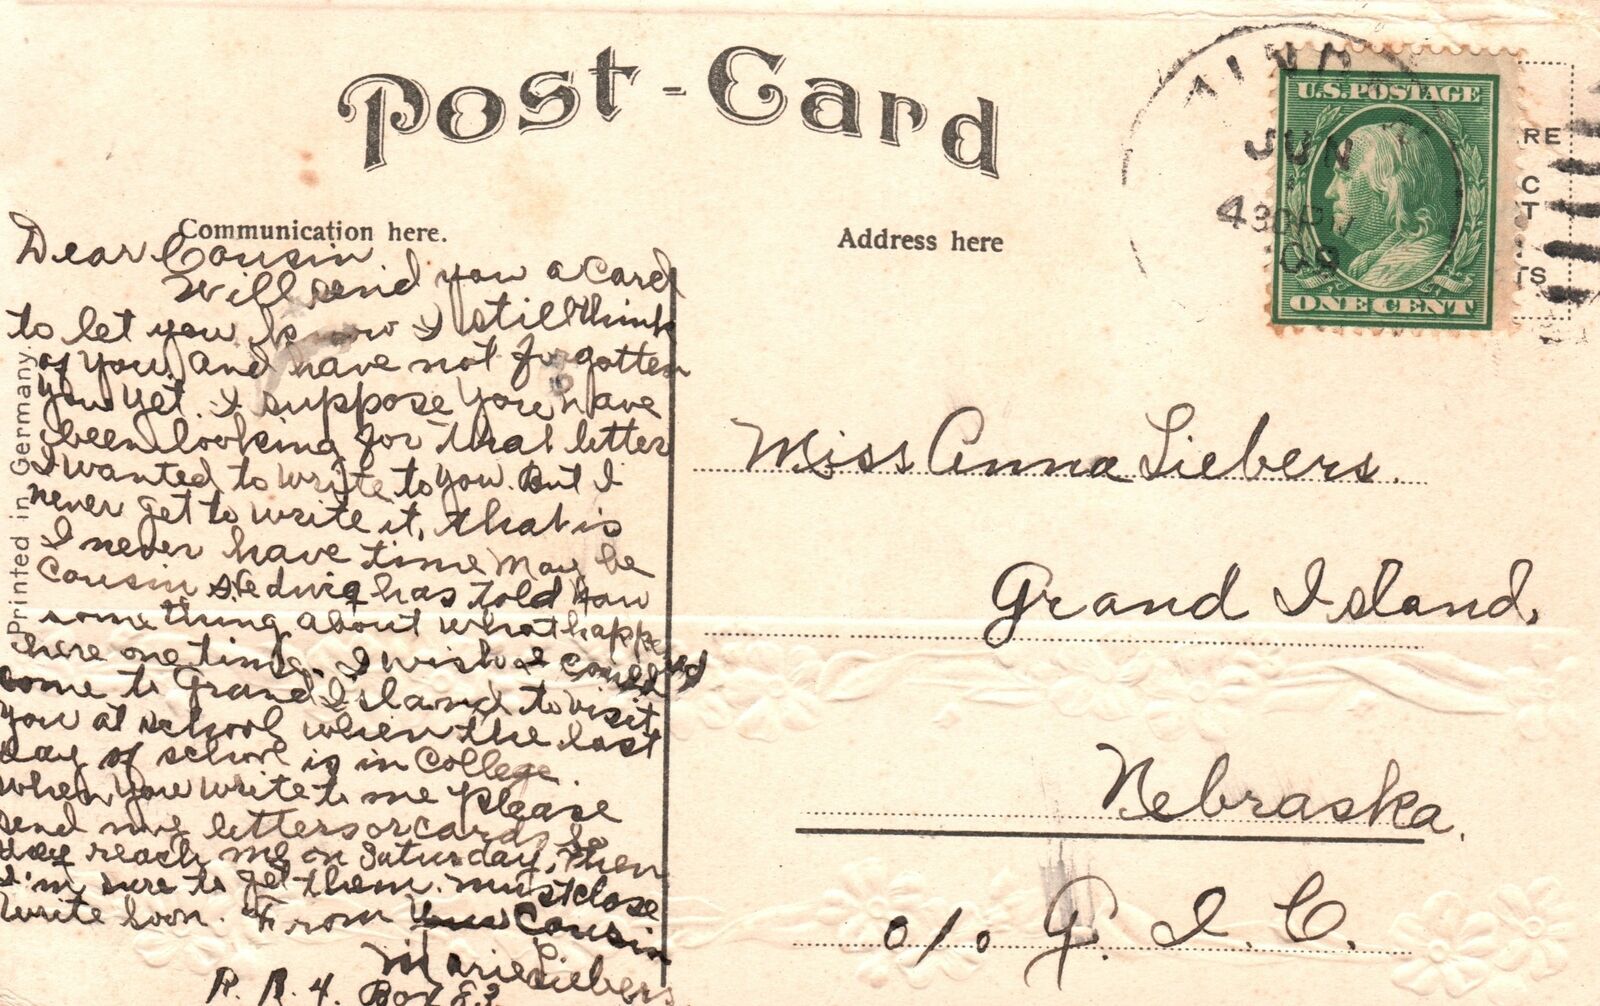 Post-Card
Communication here.
Address here
Printed in Germany.
Dear Cousin
Will send you a card
to let you know I still think
of you. And have not forgotten
you yet. I suppose you have
been looking for that letter
I wanted to write to you. But I
never get to write it, that is
I never have time May be
Cousin Hedwig has told you
something about what happened
here one time. I wish I could
come to Grand Island to visit
you at school when the last
day of school is in College.
When you write to me please
send my letters or cards so
they reach me on Saturday, then
I'm sure to get them. must close
Write soon. From your Cousin
Marie Liebers
R. R. 4. Box 83
JUN
4 30 P M
09
U.S. POSTAGE
ONE CENT
RE
C
T
TS
Miss Anna Liebers.
Grand Island,
Nebraska.
o/o G. I. C.